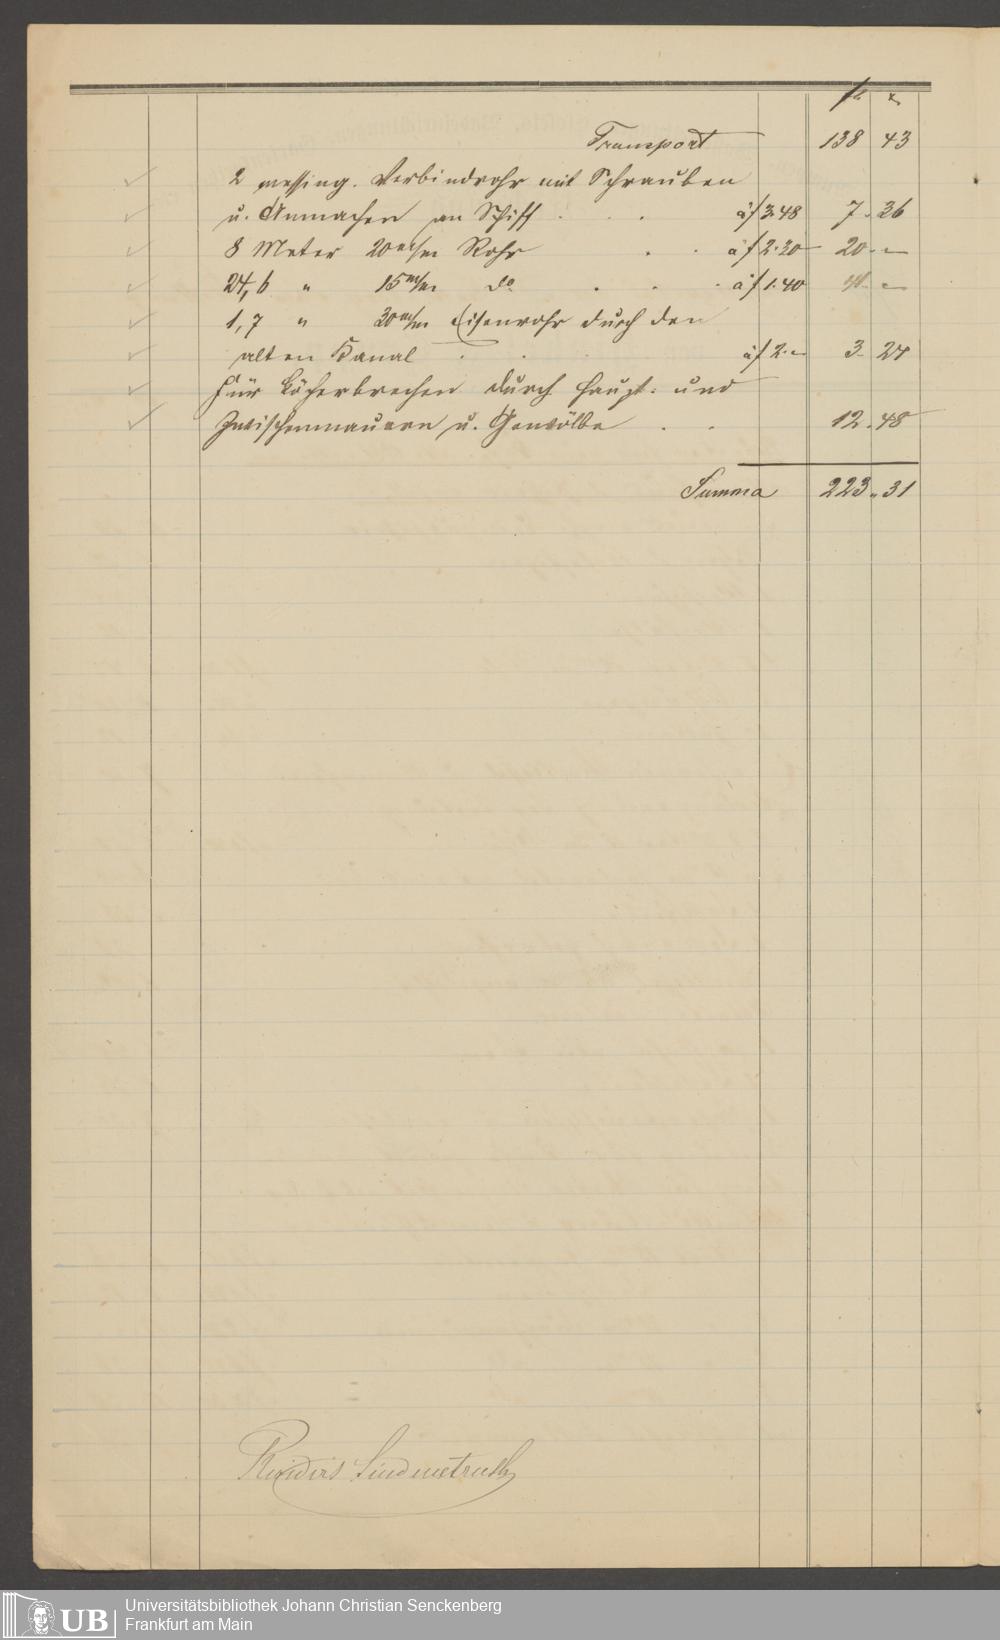 fl x
Transport 138 43
2 messing. Verbindrohr mit Schrauben
u. Anmachen an Schiff . . . à f 3.48 7.36
8 Meter 20 m/m Rohr . . à f 2.30 20.–
24,6 " 15 m/m do . . . à f 1.40 41.–
1,7 " 30 m/m Eisenrohr durch den
alten Kanal . . . à f 2.– 3.24
Für Löcherbrechen durch Haupt: und
Zwischenmauern u. Gewölbe . . 12.48
Summa 223.31
UB
Universitätsbibliothek Johann Christian Senckenberg
Frankfurt am Main